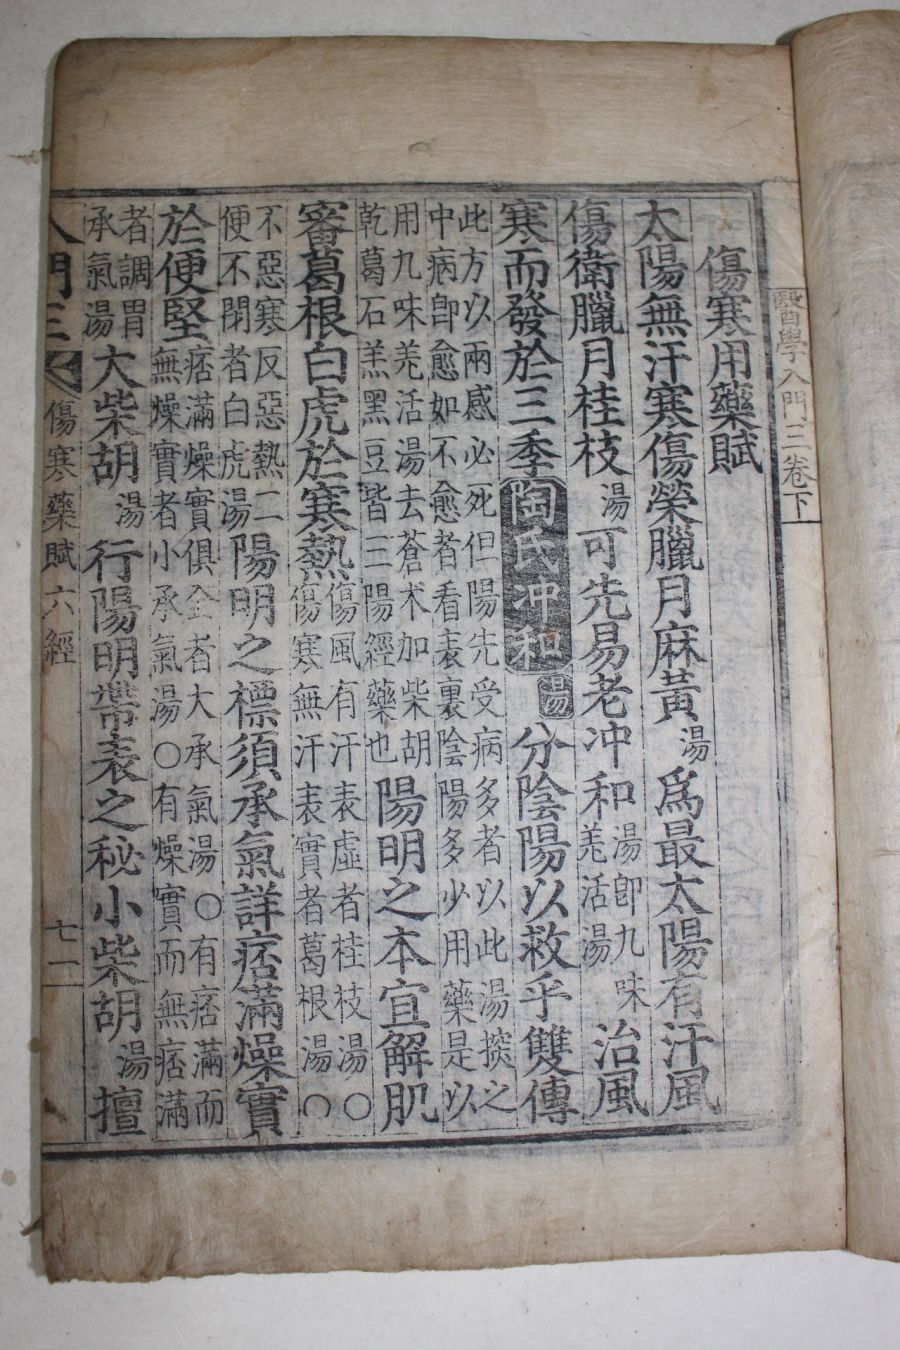 醫學入門三卷下
傷寒用藥賦
太陽無汗寒傷榮臘月麻黃湯爲最太陽有汗風
傷衛臘月桂枝湯可先易老冲和湯卽九味羌活湯治風
寒而發於三季陶氏冲和湯分陰陽以救乎雙傳
此方以兩感必死但陽先受病多者以此湯探之
中病卽愈如不愈者看表裏陰陽多少用藥是以
用九味羌活湯去蒼朮加柴胡
乾葛石羔黑豆皆三陽經藥也陽明之本宜解肌
審葛根白虎於寒熱傷風有汗表虛者桂枝湯○
傷寒無汗表實者葛根湯○
不惡寒反惡熱二
便不閉者白虎湯陽明之標須承氣詳痞滿燥實
於便堅痞滿燥實俱全者大承氣湯○有痞滿而
無燥實者小承氣湯○有燥實而無痞滿
者調胃
承氣湯大柴胡湯行陽明帶表之秘小柴胡湯擅
入門三 傷寒藥賦六經 七二